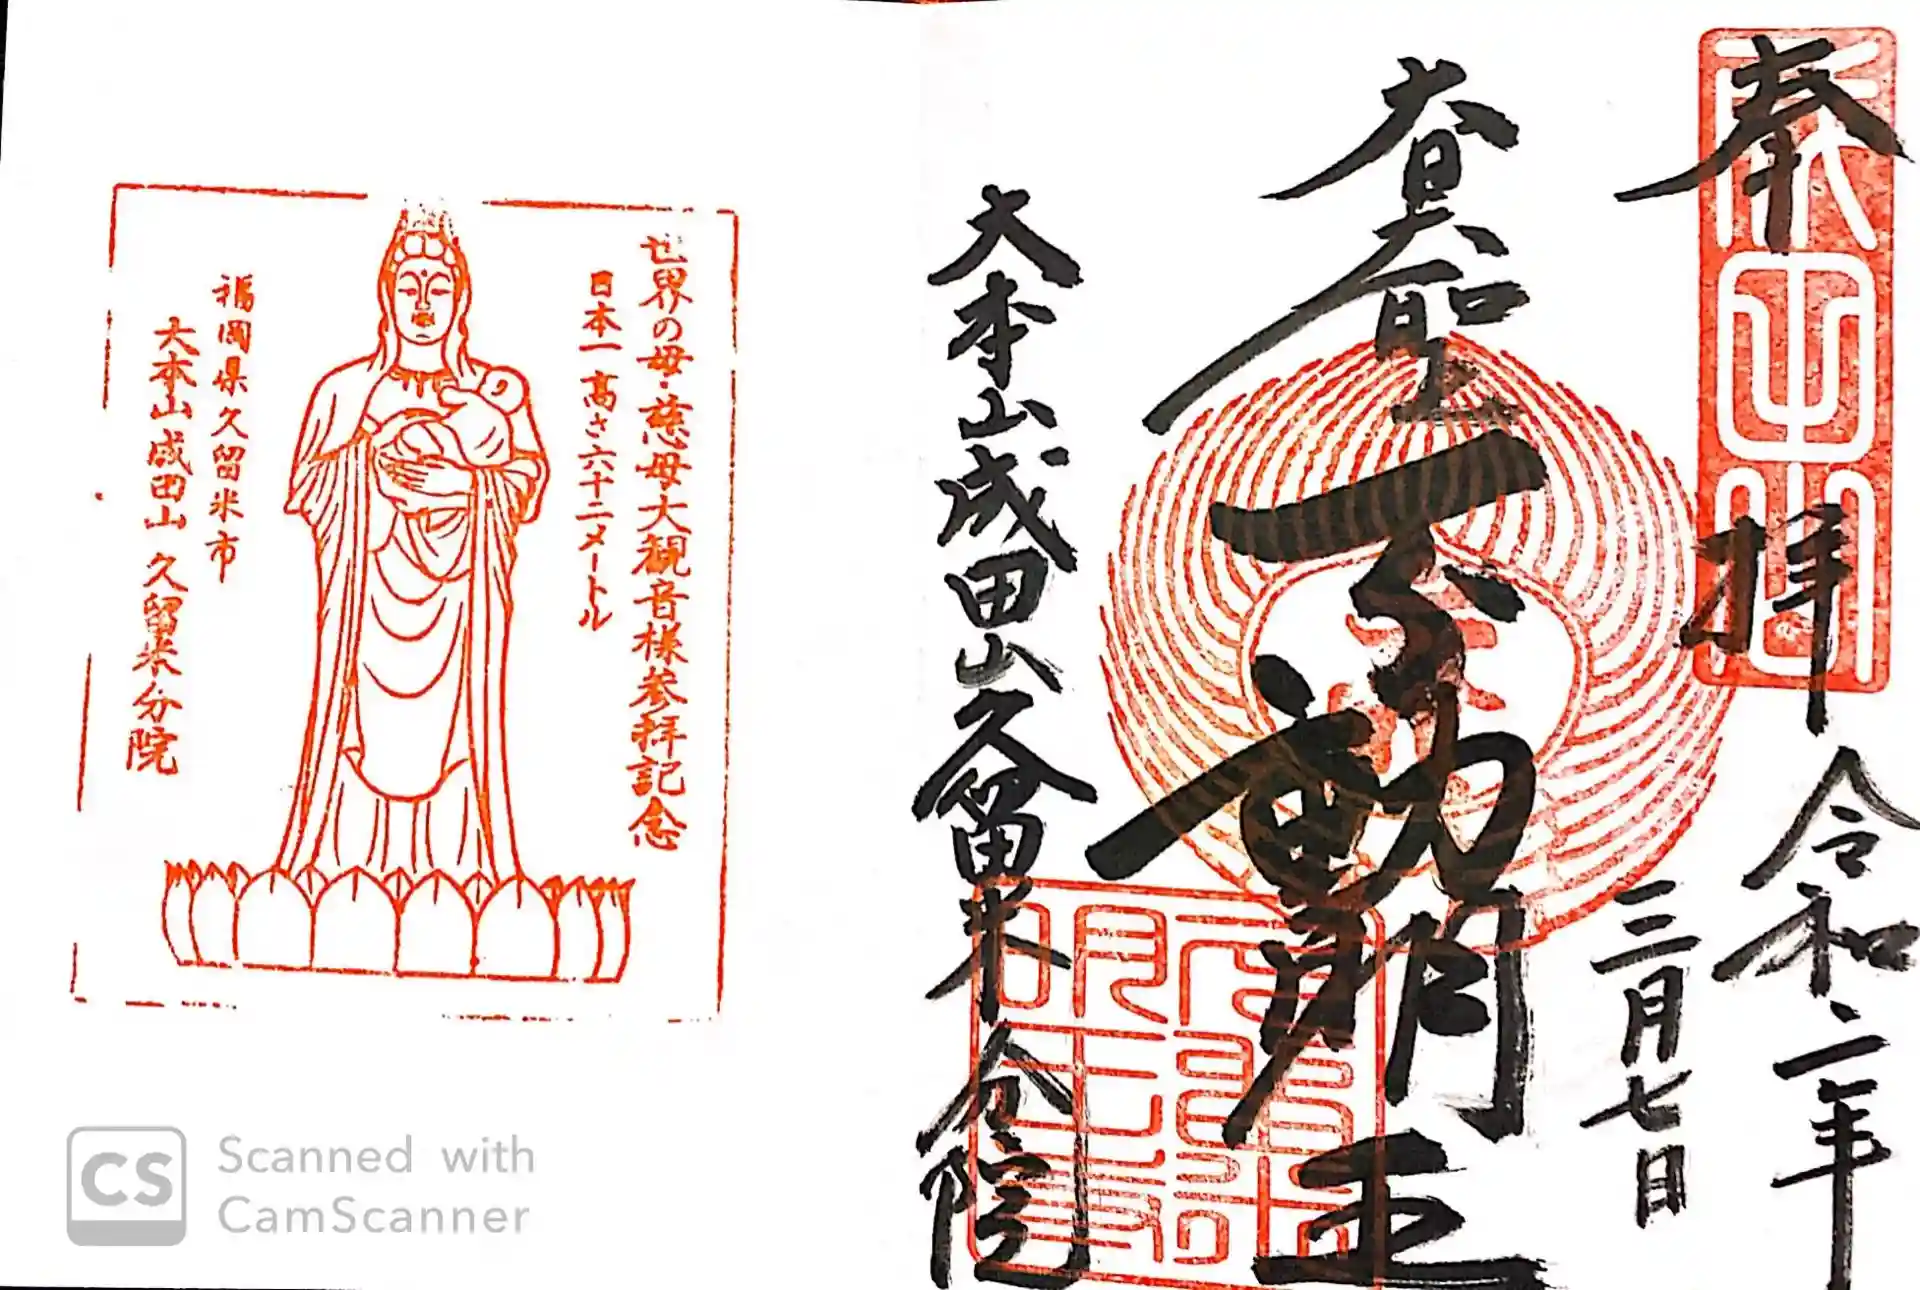 奉拝
令和二年
三月七日
大日大聖不動明王
大本山成田山久留米分院
成田山
世界の母・慈母大観音様参拝記念
日本一高さ六十二メートル
福岡県久留米市
大本山成田山久留米分院
CS Scanned with
CamScanner